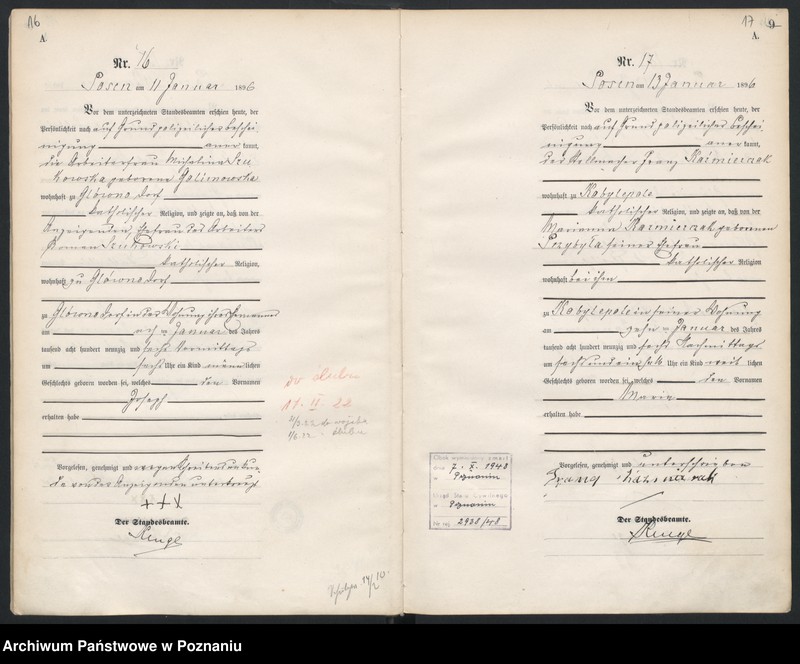 16
A.
Nr. 16
Posen am 11 Januar 1896
Vor dem unterzeichneten Standesbeamten erschien heute, der
Persönlichkeit nach auf Grund polizeilicher beschei
nigung anerkannt,
die Arbeiterfrau Michalina
geborene
wohnhaft zu Glówno Dorf
katholischer Religion, und zeigte an, daß von der
Anzeigenden, Ehefrau des Arbeiters
Roman
katholischer Religion,
wohnhaft zu Glówno Dorf
zu Glówno Dorf in der Wohnung ihres Ehemannes
am acht Januar des Jahres
tausend acht hundert neunzig und sechs Vormittags
um sechs Uhr ein Kind männlichen
Geschlechts geboren worden sei, welches den Vornamen
Joseph
erhalten habe
Vorgelesen, genehmigt und wegen Schreibens unkun
de von der Anzeigenden unterkreuzt
+++
Der Standesbeamte.
17 9
A.
Nr. 17
Posen am 13 Januar 1896
Vor dem unterzeichneten Standesbeamten erschien heute, der
Persönlichkeit nach auf Grund polizeilicher beschei
nigung anerkannt,
der Stellmacher Franz Kaźmierczak
wohnhaft zu Kobylepole
katholischer Religion, und zeigte an, daß von der
Marianna Kaźmierczak geborenen
Przybyła seiner Ehefrau
katholischer Religion
wohnhaft bei ihm
zu Kobylepole in seiner Wohnung
am zehn Januar des Jahres
tausend acht hundert neunzig und sechs Nachmittags
um sechs und einhalb Uhr ein Kind weiblichen
Geschlechts geboren worden sei, welches den Vornamen
Maria
erhalten habe
Vorgelesen, genehmigt und unterschrieben
Der Standesbeamte.
7. X. 1948
Poznaniu
Urząd Stanu Cywilnego
w Poznaniu
Nr rej. 2938/48
Archiwum Państwowe w Poznaniu